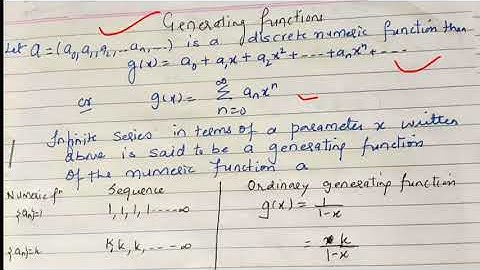 Generating functions
Let a = (a₀, a₁, a₂, ... aₙ, ...) is a discrete numeric function then
g(x) = a₀ + a₁x + a₂x² + ---- + aₙxⁿ + ----
or g(x) = ∞ Σ n=0 aₙxⁿ
Infinite series in terms of a parameter x written
above is said to be a generating function
of the numeric function a
Numeric fⁿ Sequence Ordinary generating function
{aₙ}=1 1, 1, 1, 1 ----- ∞ g(x) = 1/(1-x)
{aₙ}=k k, k, k, --- - ∞ = k/(1-x)